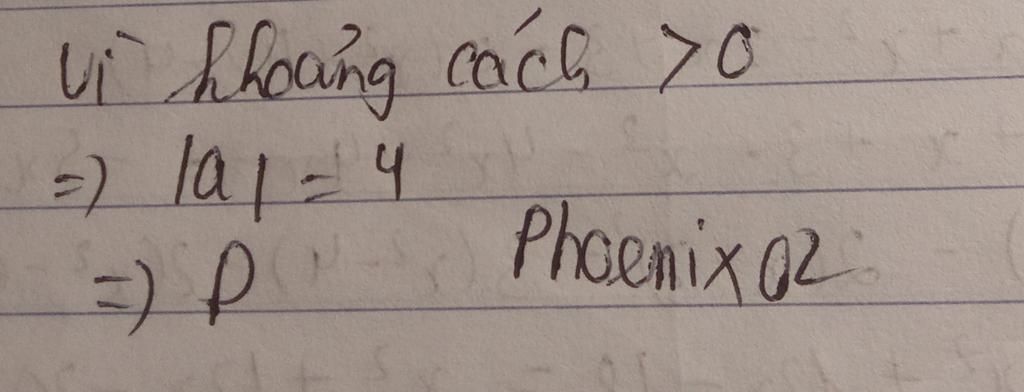 Vì khoảng cách >0
=> |a| = 4
=> D
Phoenix02